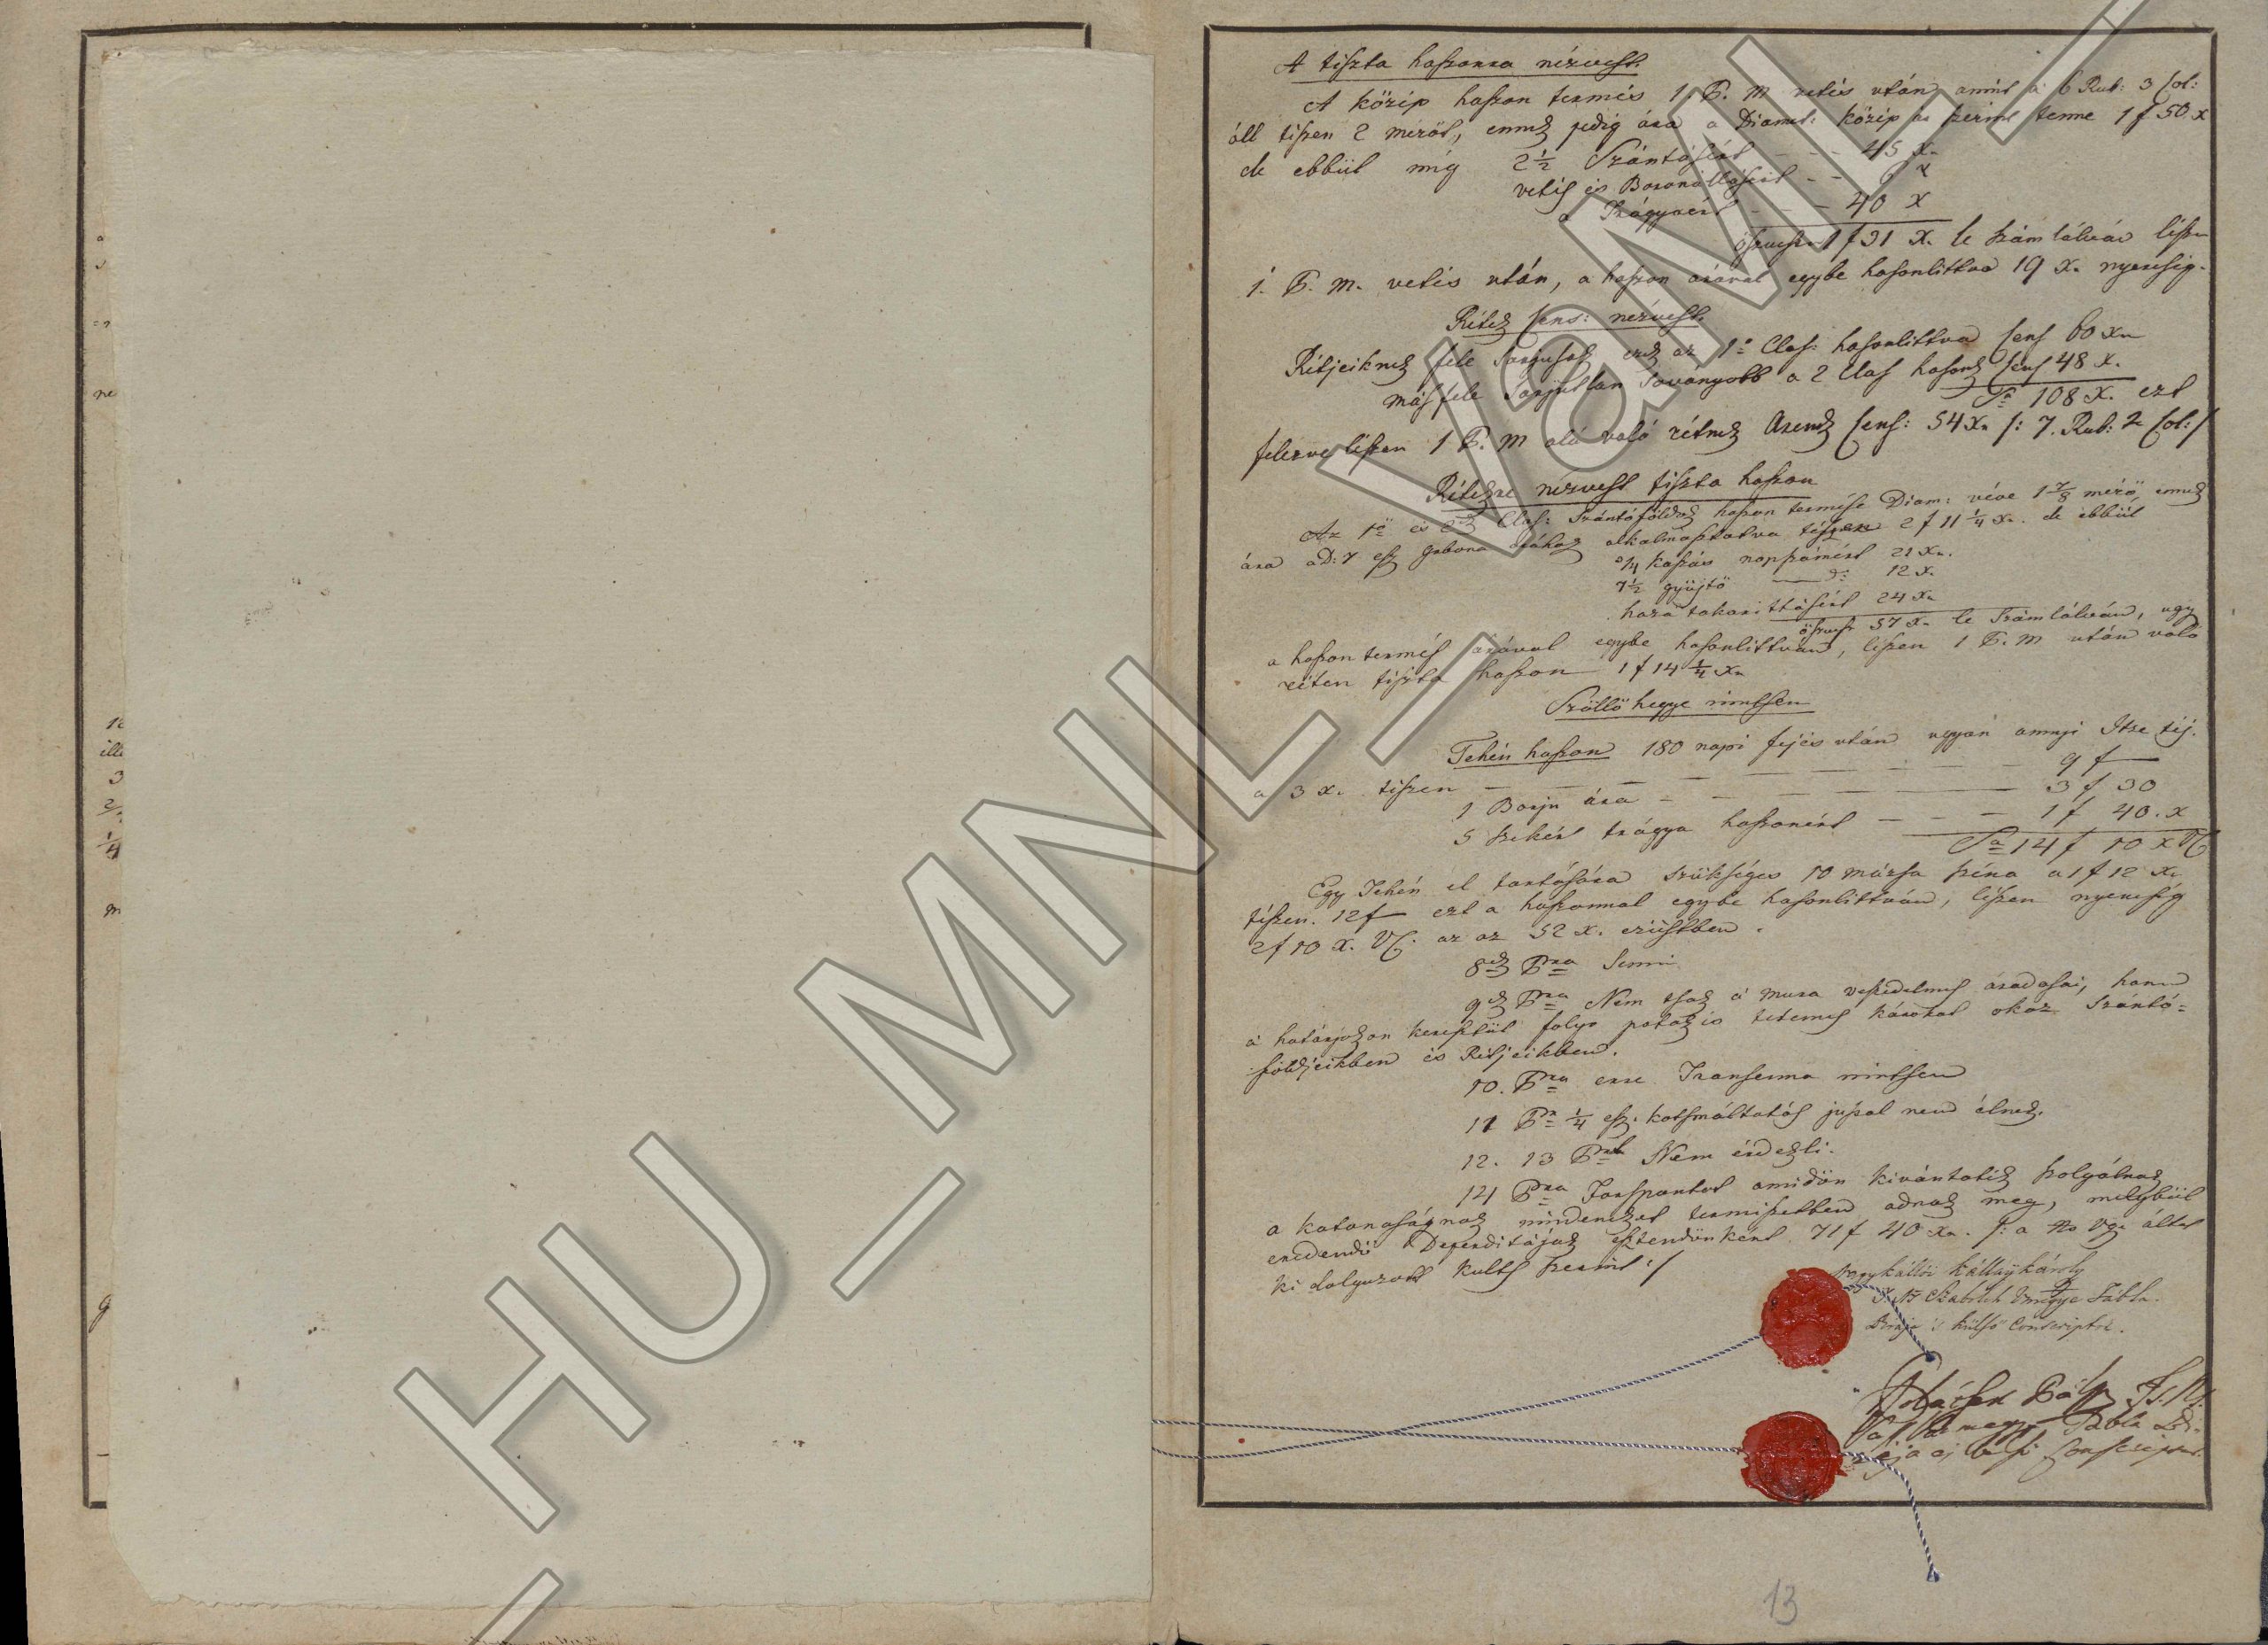 A tiszta haszonra nézvest.
A közép haszon termés 1. P. M vetés után amint a 6 Rub: 3 Col:
áll tészen 2 mérőt, ennek pedig ára a Diamet: közép ár szerint tenne 1 f 50 x
de ebbül míg 2 1/2 Szántásért - - - 45 x.
vetés és Boronállásért - - 6 x
a Trágyáért - - - 40 x
öszvesen 1 f 31 x. le számlálván lészen
1. P. M. vetés után, a haszon árával egybe hasonlittva 19 x. nyereség.
Rétek Cens: nézvest.
Rétjeiknek fele Sarjusok ezek az 1ő Clas: hasonlittva Cens 60 xr
más fele Sarjutlan Soványobb a 2 Clas hasonl Cens 48 x.
Sa 108 x. ezt
felezve lészen 1 P. M alá való rétnek Arend Cens: 54 xr /: 7. Rub: 2 Col: /
Rétekre nézvest tiszta haszon
Az 1ő és 2ik Clas: Szántóföldek haszon termése Diam: véve 1 7/8 mérő, ennek
ára a D: 7 esz gabona árához alkalmaztatva tészen 2 f 11 1/4 x. de ebbül
3/4 kaszás napszámért 21 xr.
1 1/2 gyüjtő d: 12 x.
haza takarittásért 24 xr
öszvesen 57 x. le Számlálván, ugy
a haszon termés árával egybe hasonlittván, lészen 1 P. M után való
réten tiszta haszon 1 f 14 1/4 xr
Szöllö hegye nintsen
Tehén haszon 180 napi fejés után ugyan annyi Itze téj.
a 3 x. tészen - - - - - - - 9 f
1 Borju ára - - - - 3 f 30
5 szekér trágya haszonért - - - 1 f 40. x
Sa 14 f 10 x VC
Egy Tehén el tartására szükséges 10 mársa széna a 1 f 12 xr
tészen. 12 f ezt a haszonnal egybe hasonlittván, lészen nyereség
2 f 10 x. VC. az az 52 x. ezüstben.
8ik Pra Semmi
9ik Pra Nem tsak a' Mura veszedelmes áradásai, hanem
a' határjokon keresztül folyo patak is tetemes károkat okoz Szántó=
földjeikben és Rétjeikben.
10. Pra erre Transenna nintsen
11 Pra 1/4 esz. kotsmáltatás jussal nem élnek.
12. 13 Prat Nem érdekli.
14 Pra Forspontot amidőn kivántatik szolgálnak
a katonaságnak mindeneket természetben adnak meg, melybül
eredendő Deperditájuk esztendönként 71 f 40 xr. /: a Ns Vgye által
ki dolgozott kults szerint :/
Nagykállói Kállay Károly
T. N. Szabolcs Vmegye Tábla
Birája 's külső Conscriptor.
13